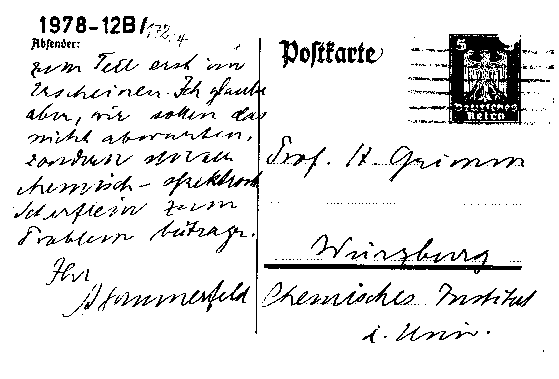 1978-12B/172,4
Absender:
Postkarte
5
Deutsches
Reich
zum Teil erst im
Erscheinen. Ich glaube
aber, wir sollen das
nicht abwarten,
sondern
chemisch-spektrosk
Scherflein zum
Problem beitragen.
Ihr
A Sommerfeld
Prof. H. Grimm
Würzburg
Chemisches Institut
d. Univ.